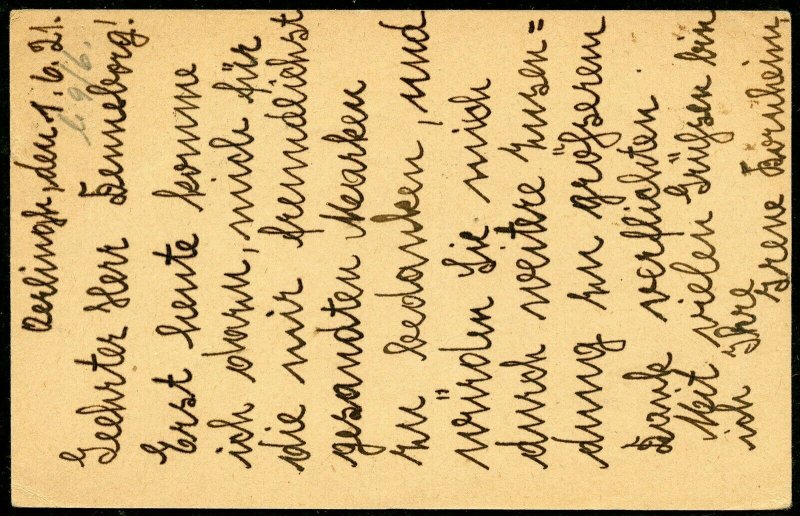 Oerlingh, den 1. 6. 21.
b. 9/6.
Geehrter Herr Denneborg!
Erst heute komme
ich dazu, mich für
die mir freundlichst
gesandten Marken
zu bedanken, und
würden Sie mich
durch weitere Zusen=
dung zu größerem
Dank verflichten.
Mit vielen Grüßen bin
ich Ihre
Irene Bornheim